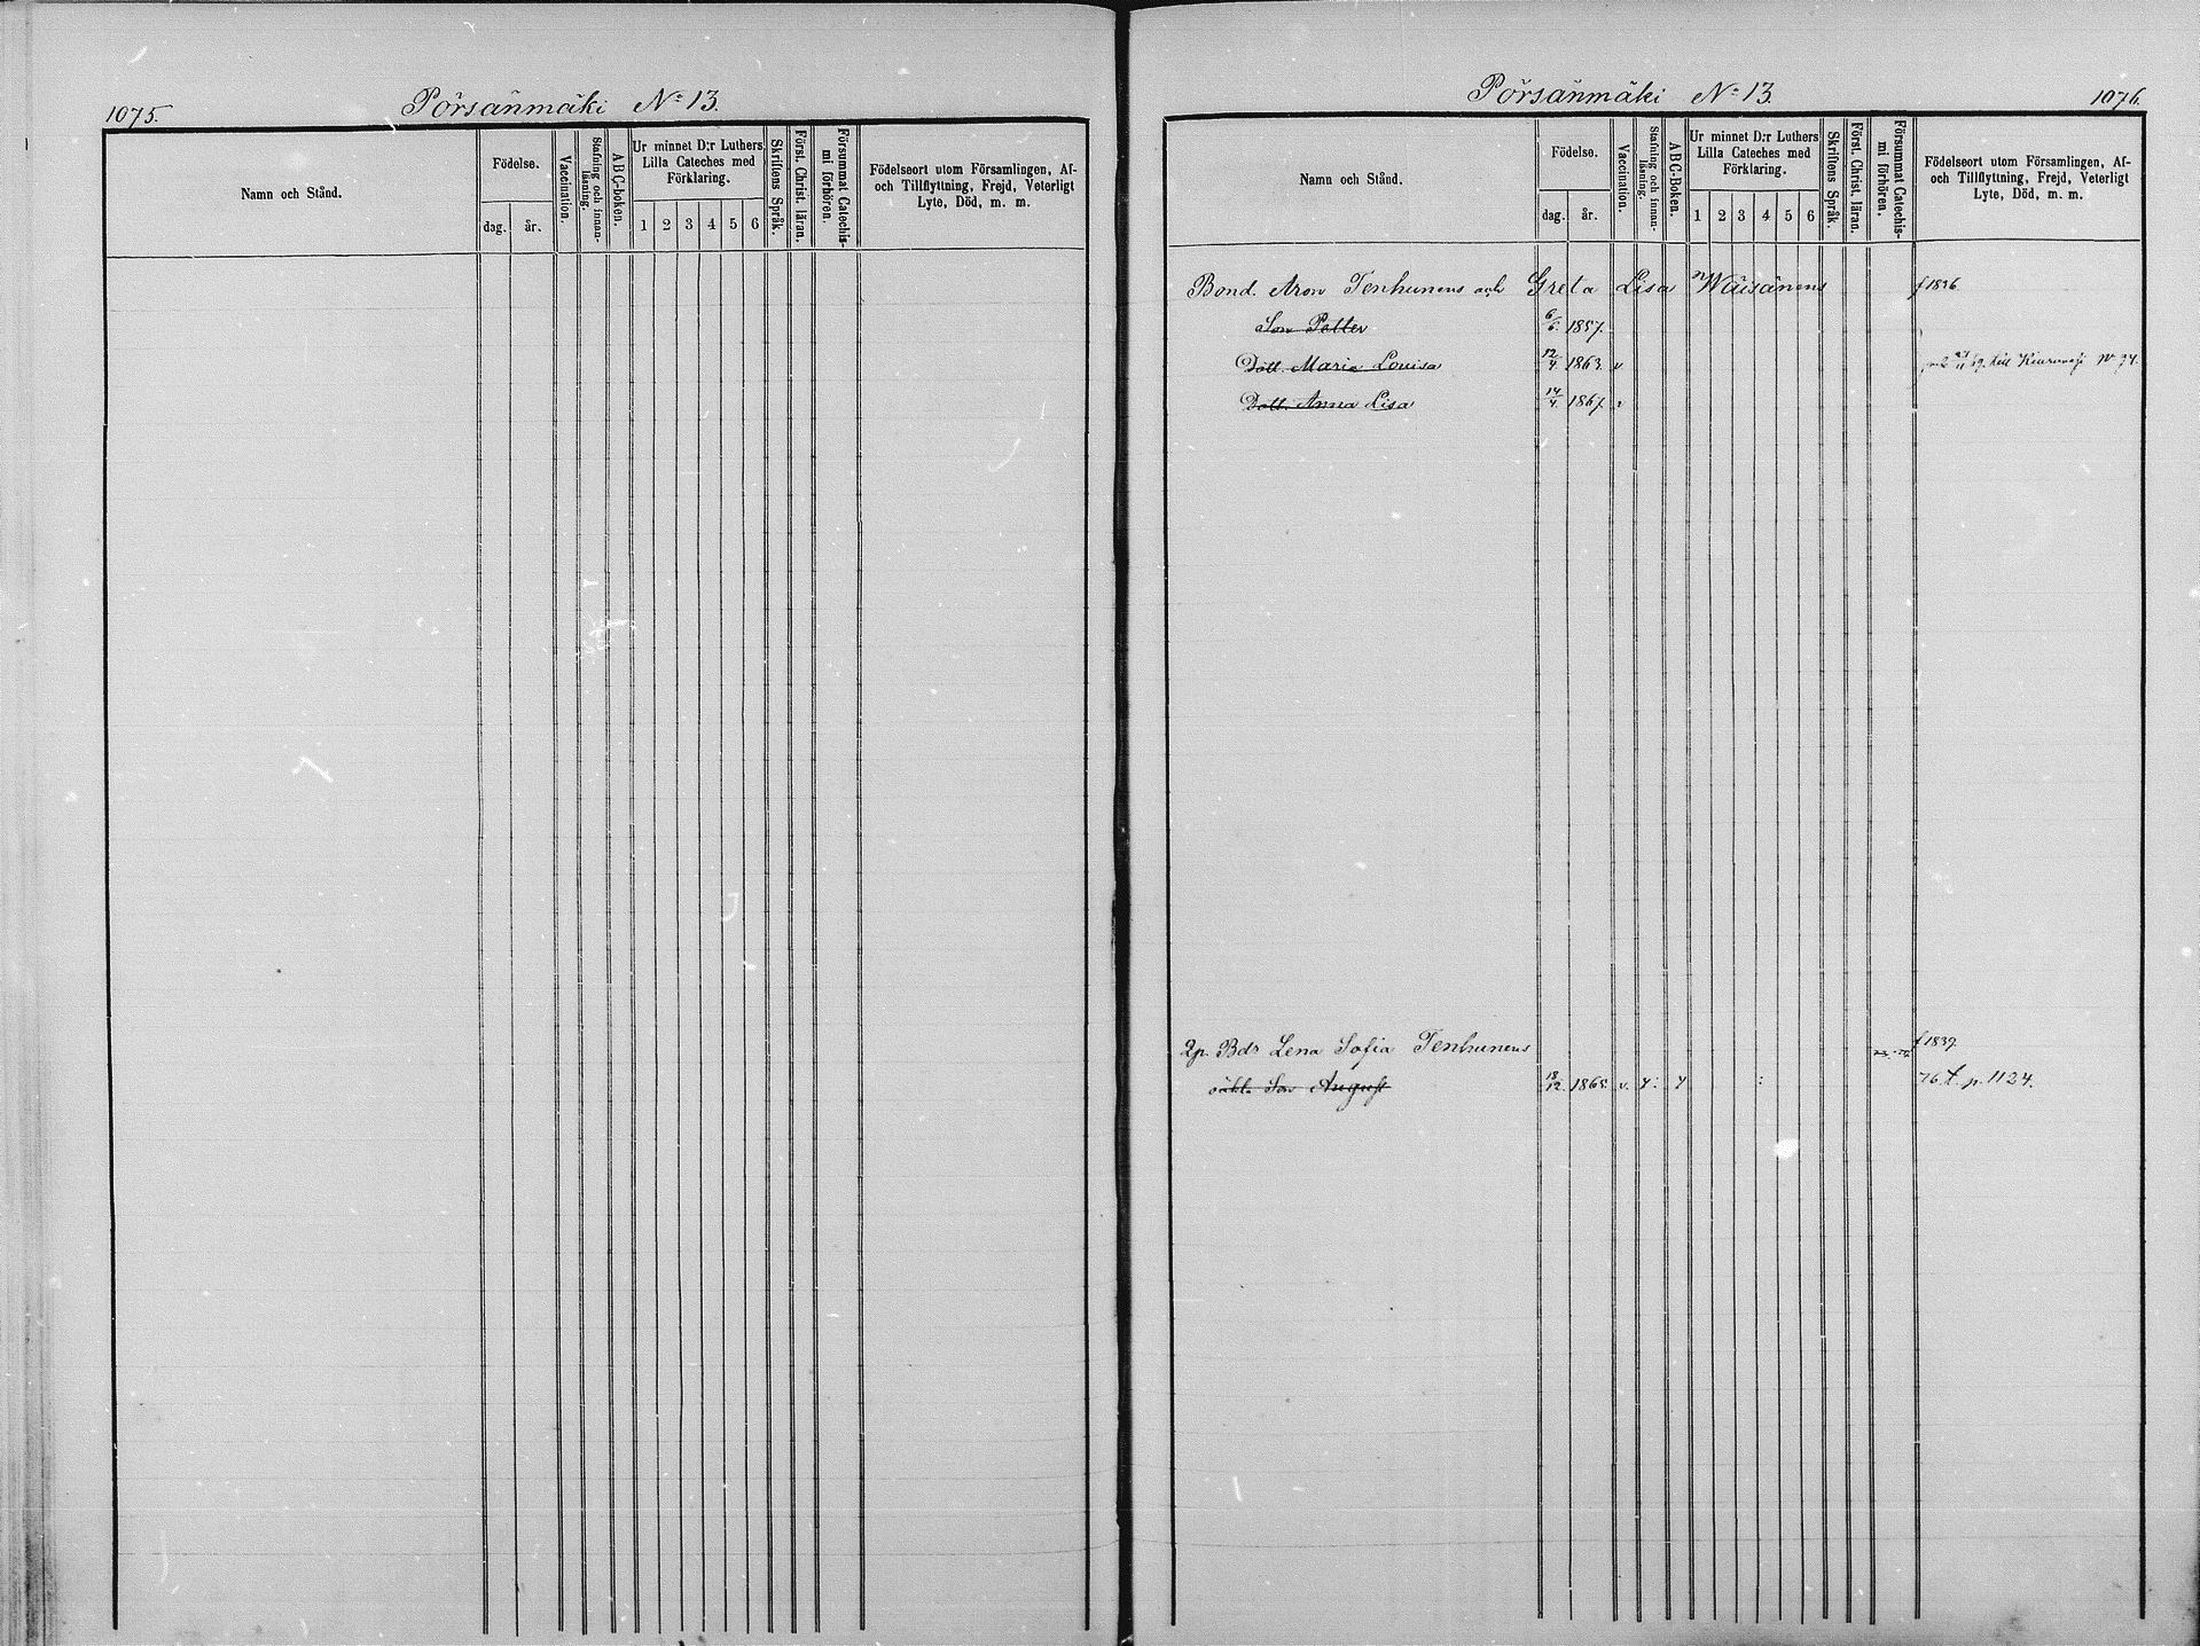 1075.
Pörsänmäki No 13.
Namn och Stånd.
Födelse.
dag. år.
Vaccination.
Stafning och innan-läsning.
ABC-boken.
Ur minnet D:r Luthers Lilla Cateches med Förklaring.
1 2 3 4 5 6
Skriftens Språk.
Först. Christ. läran.
Försummat Catechis-mi förhören.
Födelseort utom Församlingen, Af-
och Tillflyttning, Frejd, Veterligt
Lyte, Död, m. m.
Pörsänmäki No 13.
1076.
Namn och Stånd.
Födelse.
dag. år.
Vaccination.
Stafning och innan-läsning.
ABC-Boken.
Ur minnet D:r Luthers Lilla Cateches med Förklaring.
1 2 3 4 5 6
Skriftens Språk.
Först. Christ. läran.
Försummat Catechis-mi förhören.
Födelseort utom Församlingen, Af-
och Tillflyttning, Frejd, Veterligt
Lyte, Död, m. m.
Bond. Aron Tenhunens och Greta Lisa Wäisänens f 1836
Son Petter 6/6. 1857.
Dott. Maria Louisa 12/4. 1863. v till Kiuruvesi No 94.
Dott. Anna Lisa 14/4. 1867. v
Bdr Lena Sofia Tenhunens f 1839.
oäkt. Son August 18/12. 1865. v. 76 t. p. 1124.